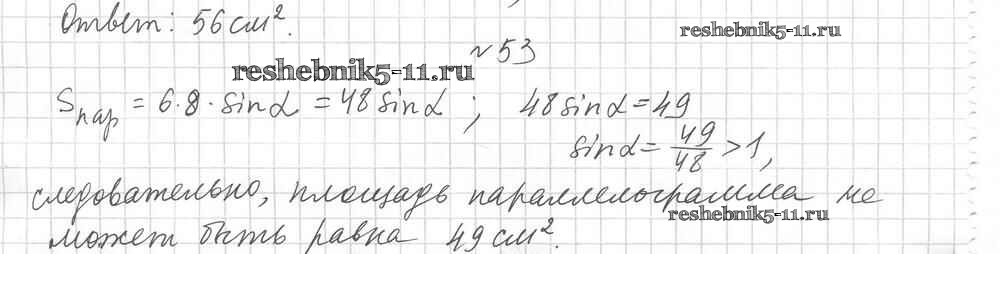 Ответ: 56 см².
reshebnik5-11.ru
№53
reshebnik5-11.ru
Sпар = 6·8·sinα = 48 sinα ; 48 sinα = 49
sinα = 49/48 > 1,
следовательно, площадь параллелограмма не
reshebnik5-11.ru
может быть равна 49 см².